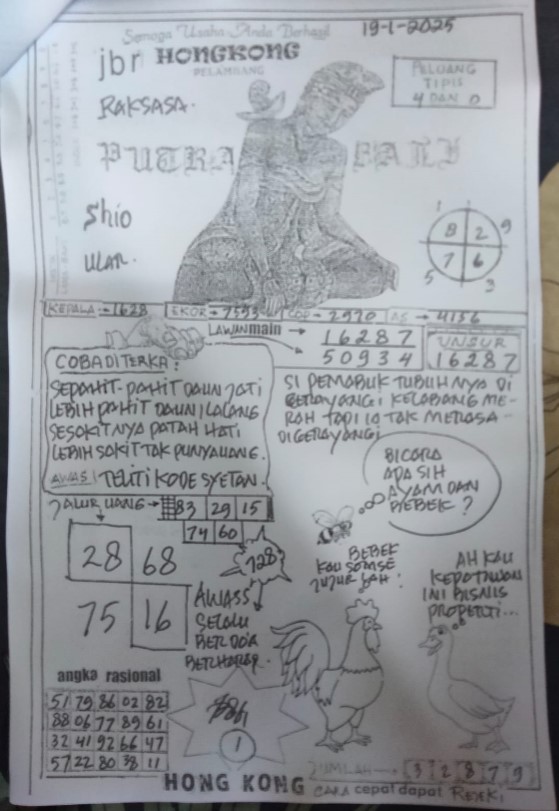 Semoga Usaha Anda Berhasil
19-1-2025
jbr HONGKONG
PELAMBANG
PELUANG
TIPIS
4 DAN 0
RAKSASA.
PUTRA BALI
Shio
ULAR.
1 1
8 2 9
7 6
5 3
KEPALA → 1628 EKOR → 7593 COP → 2970 AS → 4136
LAWAN main →
16287
50934
UNSUR
16287
COBA DITERKA:
SEPAHIT-PAHIT DAUN JATI
LEBIH PAHIT DAUN ILALANG
SESAKITNYA PATAH HATI
LEBIH SAKIT TAK PUNYA UANG.
AWAS! TELITI KODE SYETAN.
SI PEMABUK TUBUHNYA DI
GERAYANGI KELABANG ME-
RAH TAPI IA TAK MERASA
DIGERAYANGI
BICARA
APA SIH
AYAM DAN
BEBEK ?
JALUR UANG → 83 29 15
74 60
28 68
75 16
728
AWASS
SELALU
BERDOA
BERHARAP.
BEBEK
KAU SOMSE
JUJUR LAH!
AH KAU
KEPO
INI BISNIS
PROPERTI...
angka rasional
51 79 86 02 82
88 06 77 89 61
32 41 92 66 47
57 22 80 38 11
1
JUMLAH → 3 2 8 7 9
HONG KONG CARA cepat dapat REJEKI